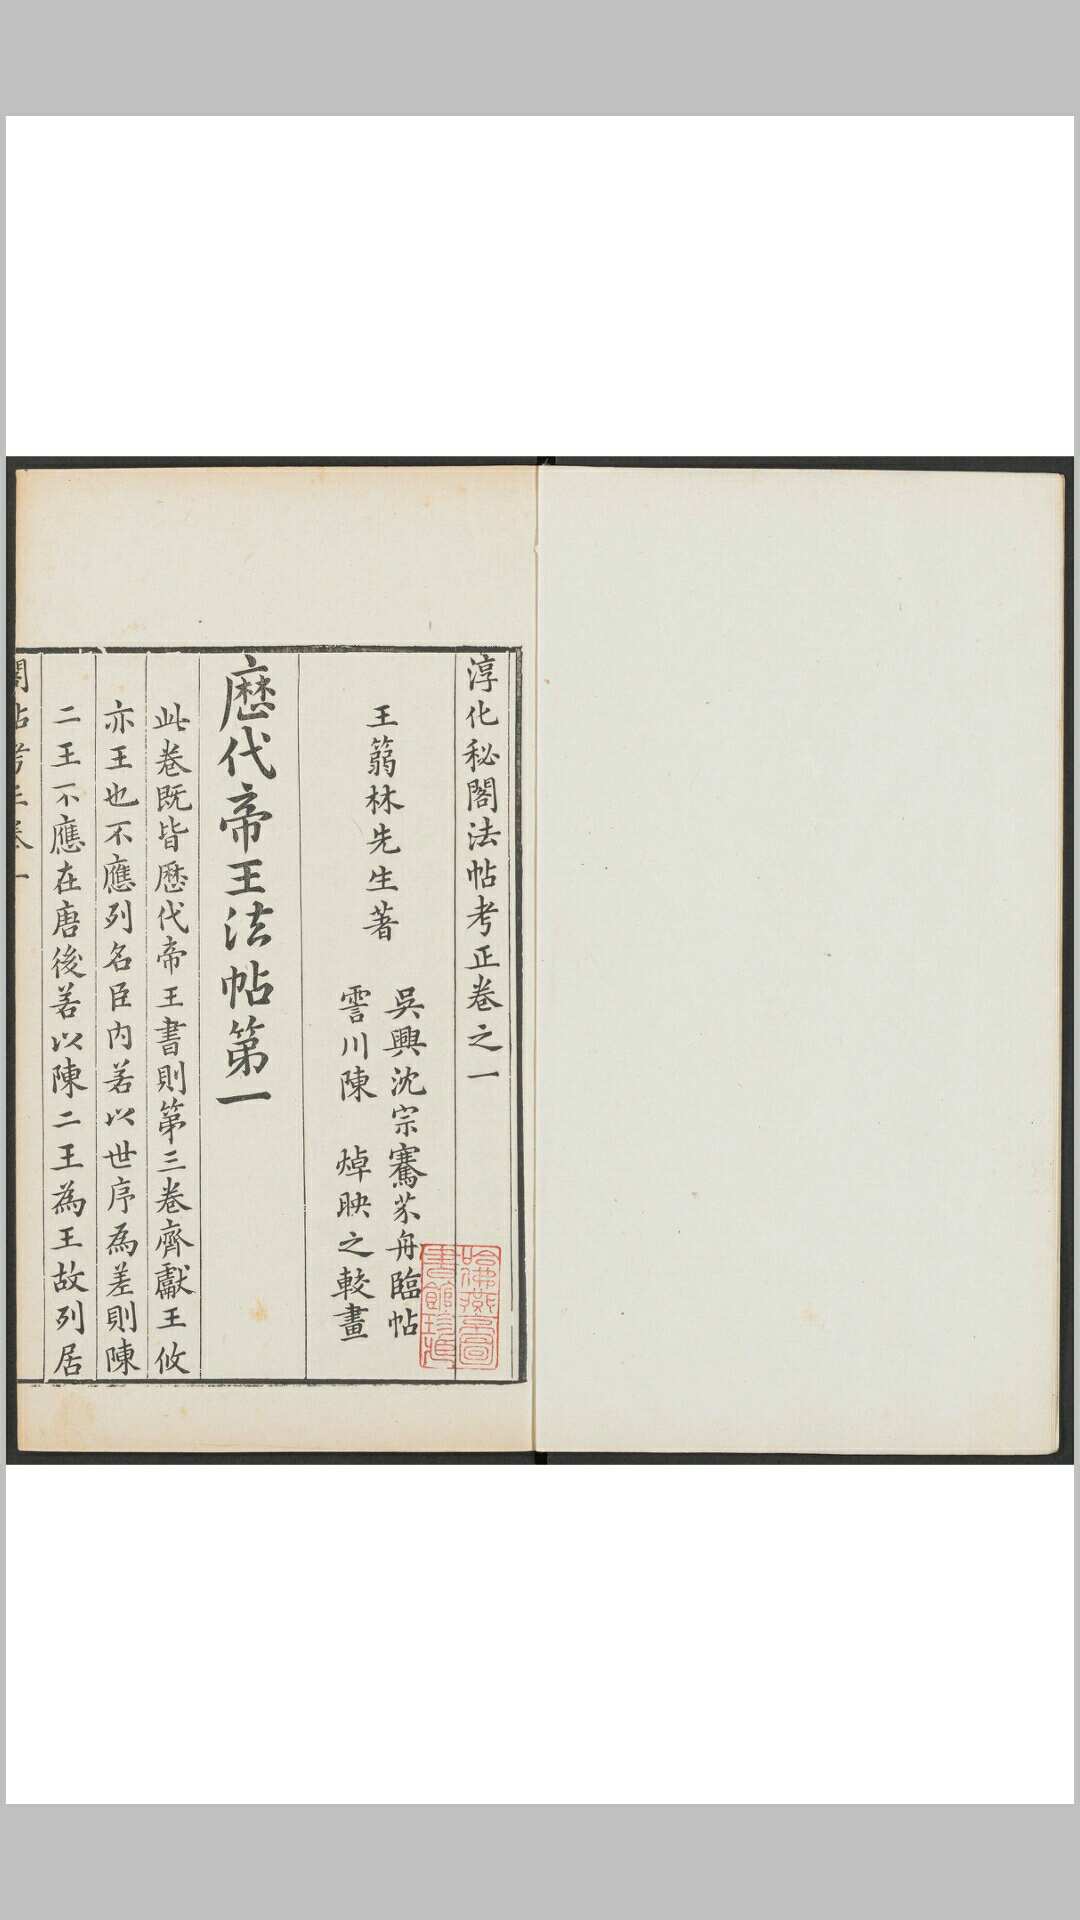 淳化秘閣法帖考正卷之一
王篛林先生著
吳興沈宗騫芥舟臨帖
霅川陳 焯映之較畫
歷代帝王法帖第一
此卷既皆歷代帝王書則第三卷齊獻王攸
亦王也不應列名臣內若以世序為差則陳
二王不應在唐後若以陳二王為王故列居
閣帖考正卷一
哈佛燕京圖
書館珍藏